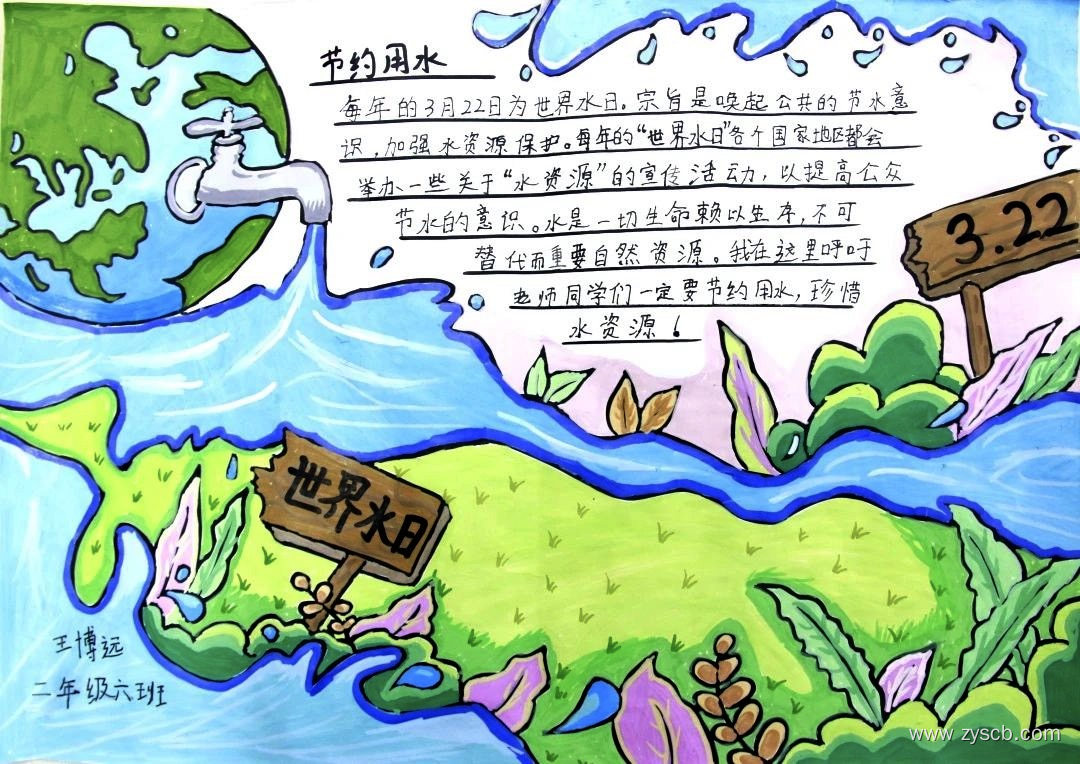 节约用水
每年的3月22日为世界水日。宗旨是唤起公共的节水意
识,加强水资源保护。每年的“世界水日”各个国家地区都会
举办一些关于“水资源”的宣传活动,以提高公众
节水的意识。水是一切生命赖以生存,不可
替代而重要自然资源。我在这里呼吁
老师同学们一定要节约用水,珍惜
水资源!
3.22
世界水日
王博远
二年级六班
www.zyscb.com